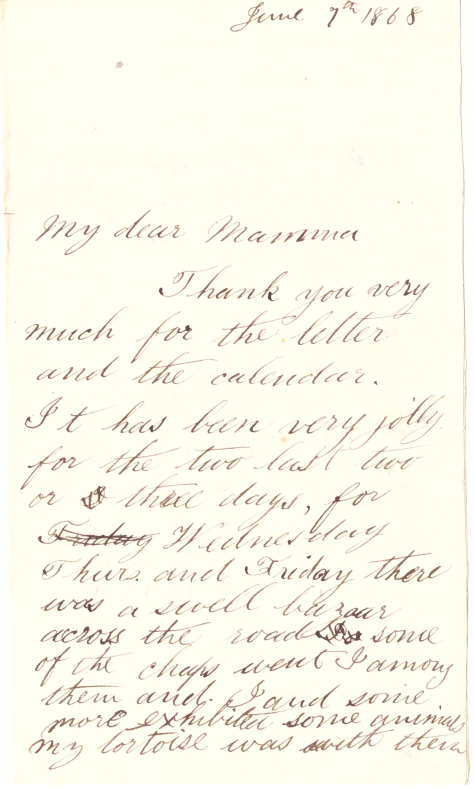 June 7th 1868
My dear Mamma
Thank you very
much for the letter
and the calendar.
It has been very jolly
for the two last two
or three days, for
Friday Wednesday
Thurs. and Friday there
was a swell bazaar
across the road some
of the chaps went I among
them and. I and some
more exhibited some animals
my tortoise was with them